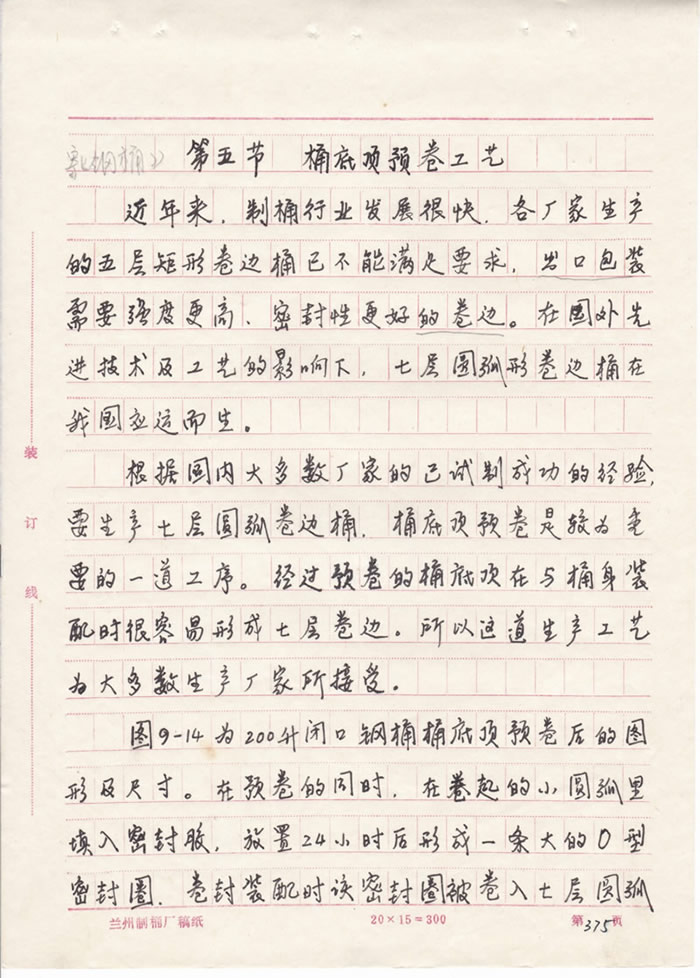 第五节 桶底顶预卷工艺
近年来，制桶行业发展很快，各厂家生产
的五层矩形卷边桶已不能满足要求，出口包装
需要强度更高、密封性更好的卷边。在国外先
进技术及工艺的影响下，七层圆弧形卷边桶在
我国应运而生。
根据国内大多数厂家的已试制成功的经验，
要生产七层圆弧卷边桶，桶底顶预卷是较为重
要的一道工序。经过预卷的桶底顶在与桶身装
配时很容易形成七层卷边。所以这道生产工艺
为大多数生产厂家所接受。
图9-14为200升闭口钢桶桶底顶预卷后的图
形及尺寸。在预卷的同时，在卷起的小圆弧里
填入密封胶，放置24小时后形成一条大的O型
密封圈，卷封装配时该密封圈被卷入七层圆弧
装
订
线
兰州制桶厂稿纸 20×15=300 第375页